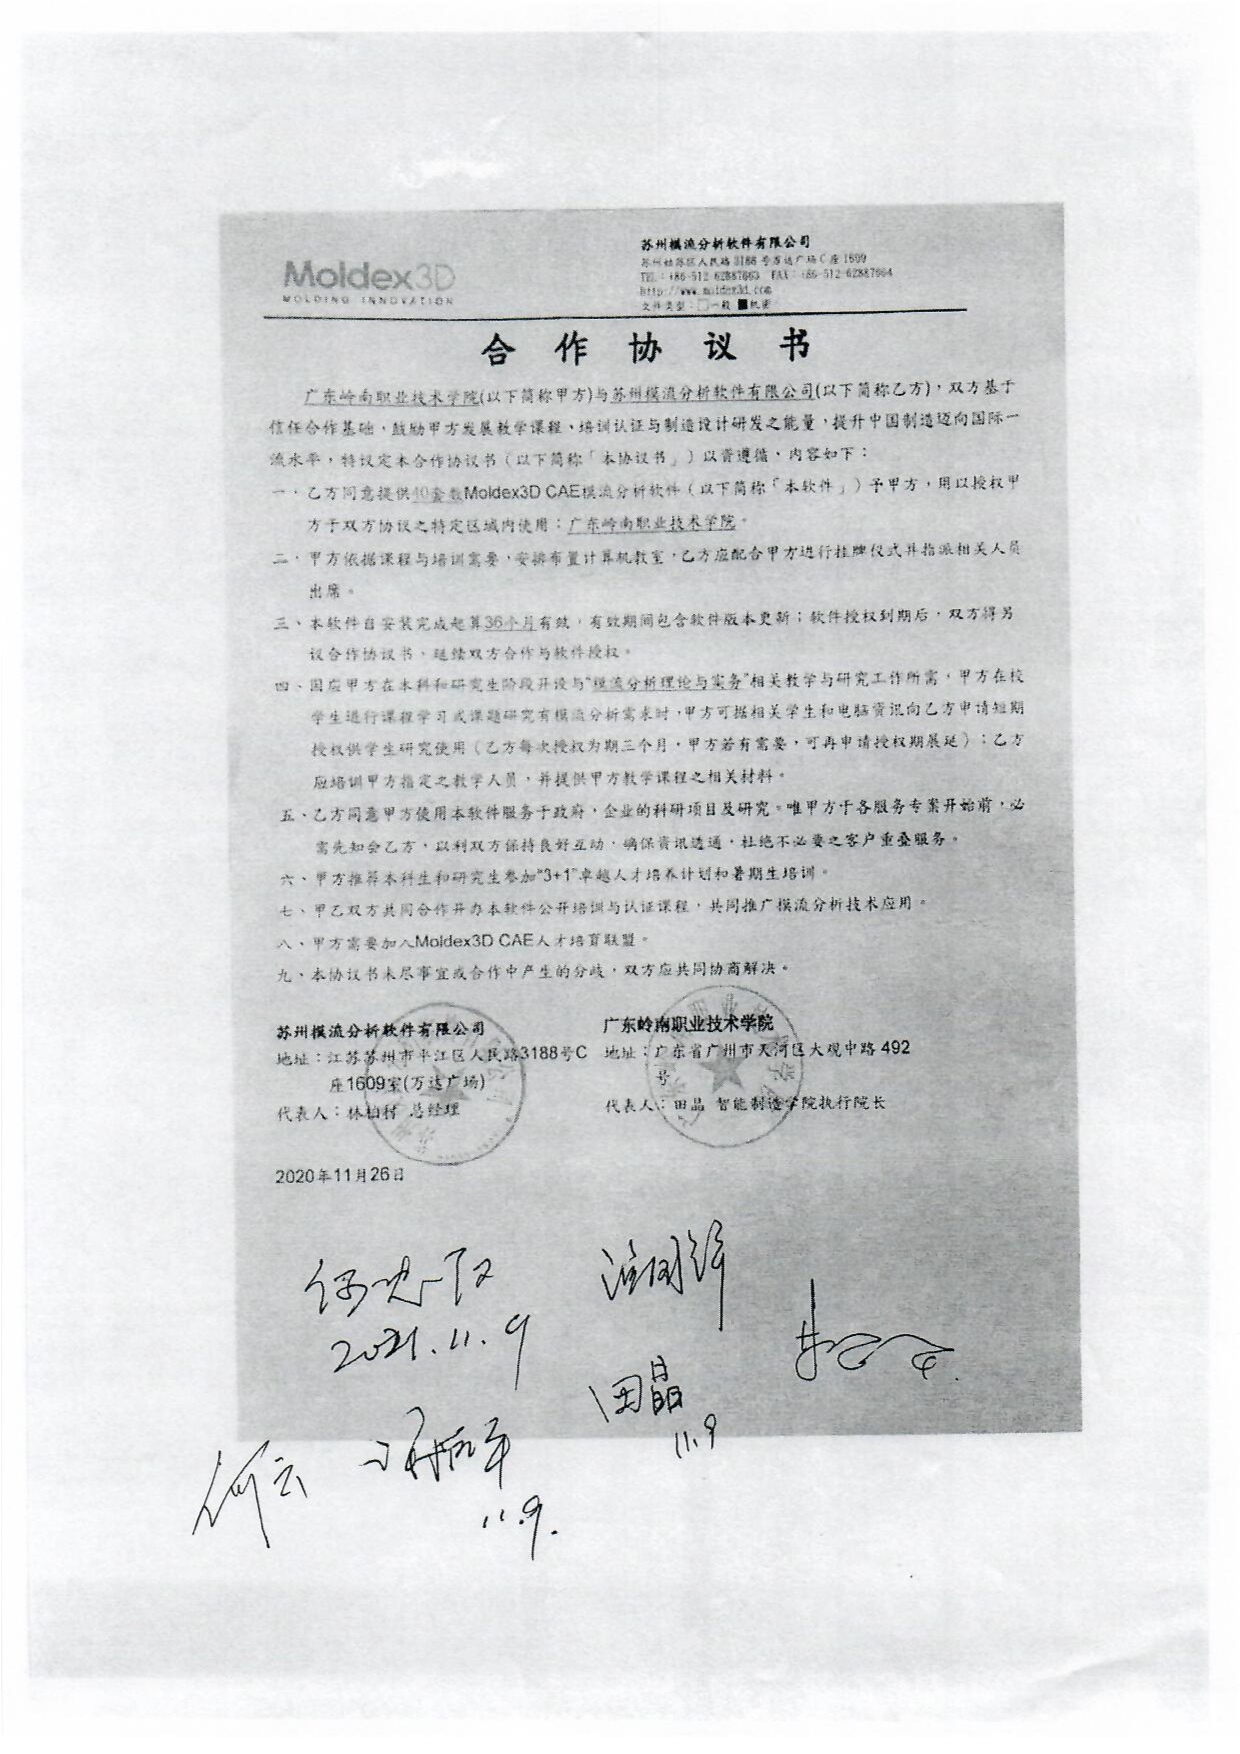 Moldex3D
MOLDING INNOVATION
苏州模流分析软件有限公司
苏州姑苏区人民路3188号万达广场C座1609
TEL：+86-512-62887663 FAX：+86-512-62887664
http://www.moldex3d.com
文件类型：□一般 ■机密
合作协议书
广东岭南职业技术学院(以下简称甲方)与苏州模流分析软件有限公司(以下简称乙方)，双方基于
信任合作基础，鼓励甲方发展教学课程、培训认证与制造设计研发之能量，提升中国制造迈向国际一
流水平，特议定本合作协议书（以下简称「本协议书」）以资遵循，内容如下：
一、乙方同意提供40套数Moldex3D CAE模流分析软件（以下简称「本软件」）予甲方，用以授权甲
方于双方协议之特定区域内使用：广东岭南职业技术学院。
二、甲方依据课程与培训需要，安排布置计算机教室，乙方应配合甲方进行挂牌仪式并指派相关人员
出席。
三、本软件自安装完成起算36个月有效，有效期间包含软件版本更新；软件授权到期后，双方得另
议合作协议书，延续双方合作与软件授权。
四、因应甲方在本科和研究生阶段开设与“模流分析理论与实务”相关教学与研究工作所需，甲方在校
学生进行课程学习或课题研究有模流分析需求时，甲方可据相关学生和电脑资讯向乙方申请短期
授权供学生研究使用（乙方每次授权为期三个月，甲方若有需要，可再申请授权期展延）；乙方
应培训甲方指定之教学人员，并提供甲方教学课程之相关材料。
五、乙方同意甲方使用本软件服务于政府，企业的科研项目及研究。唯甲方于各服务专案开始前，必
需先知会乙方，以利双方保持良好互动，确保资讯透通，杜绝不必要之客户重叠服务。
六、甲方推荐本科生和研究生参加“3+1”卓越人才培养计划和暑期生培训。
七、甲乙双方共同合作开办本软件公开培训与认证课程，共同推广模流分析技术应用。
八、甲方需要加入Moldex3D CAE人才培育联盟。
九、本协议书未尽事宜或合作中产生的分歧，双方应共同协商解决。
苏州模流分析软件有限公司
地址：江苏苏州市平江区人民路3188号C
座1609室(万达广场)
代表人：林柏村 总经理
广东岭南职业技术学院
地址：广东省广州市天河区大观中路492
号
代表人：田晶 智能制造学院执行院长
2020年11月26日
2021.11.9
田晶
11.9
何云
11.9.